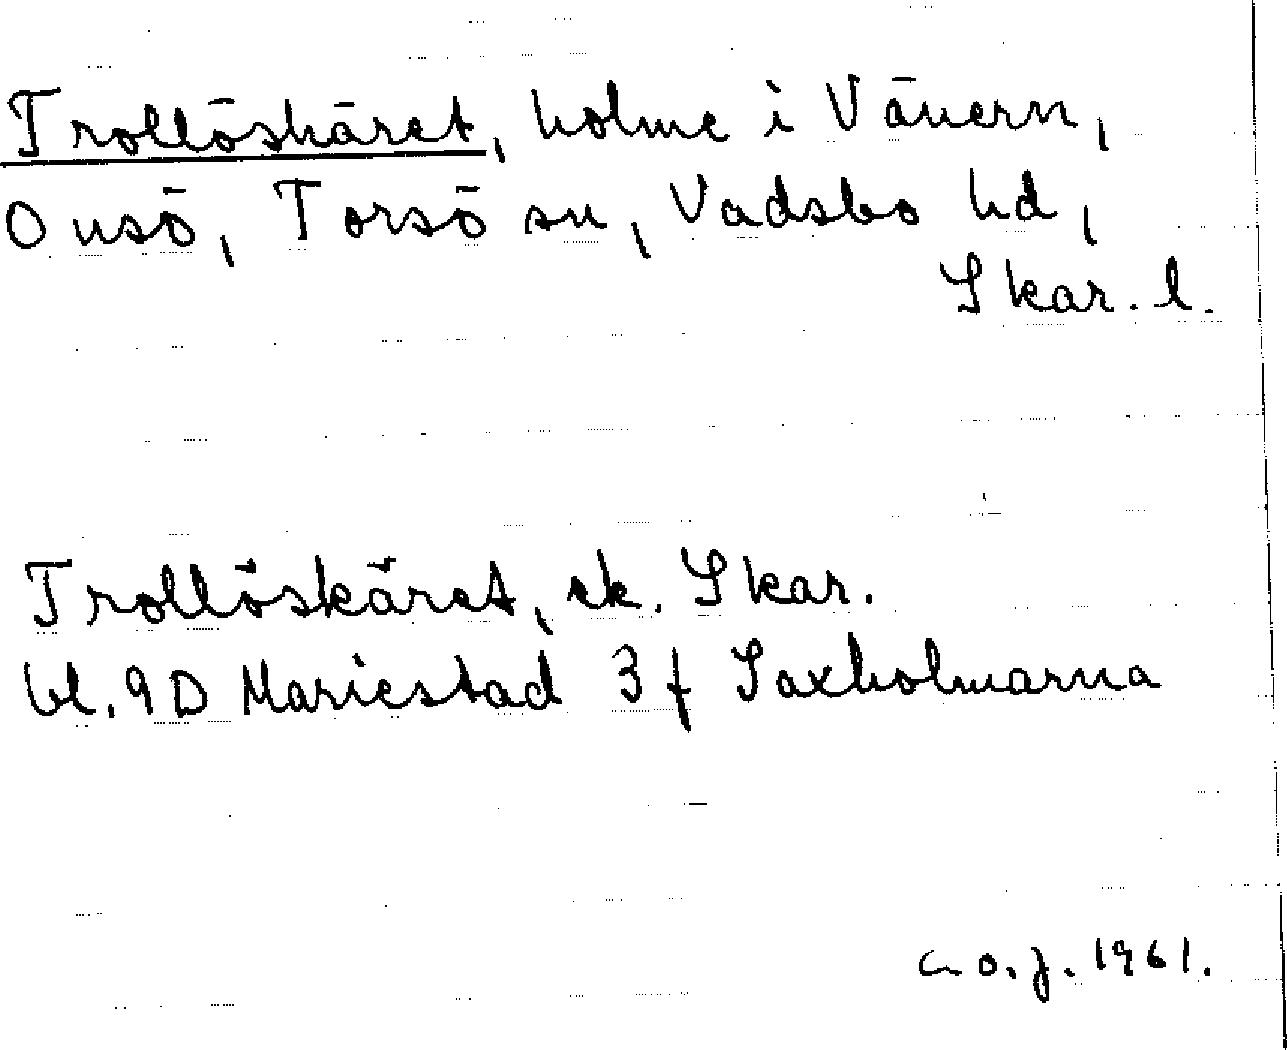 Trollöskäret, holme i Vänern,
Onsö, Torsö sn, Vadsbo hd,
Skar. l.
Trollöskäret, ek. Skar.
bl. 9D Mariestad 3 f Saxholmarna
o. j. 1961.